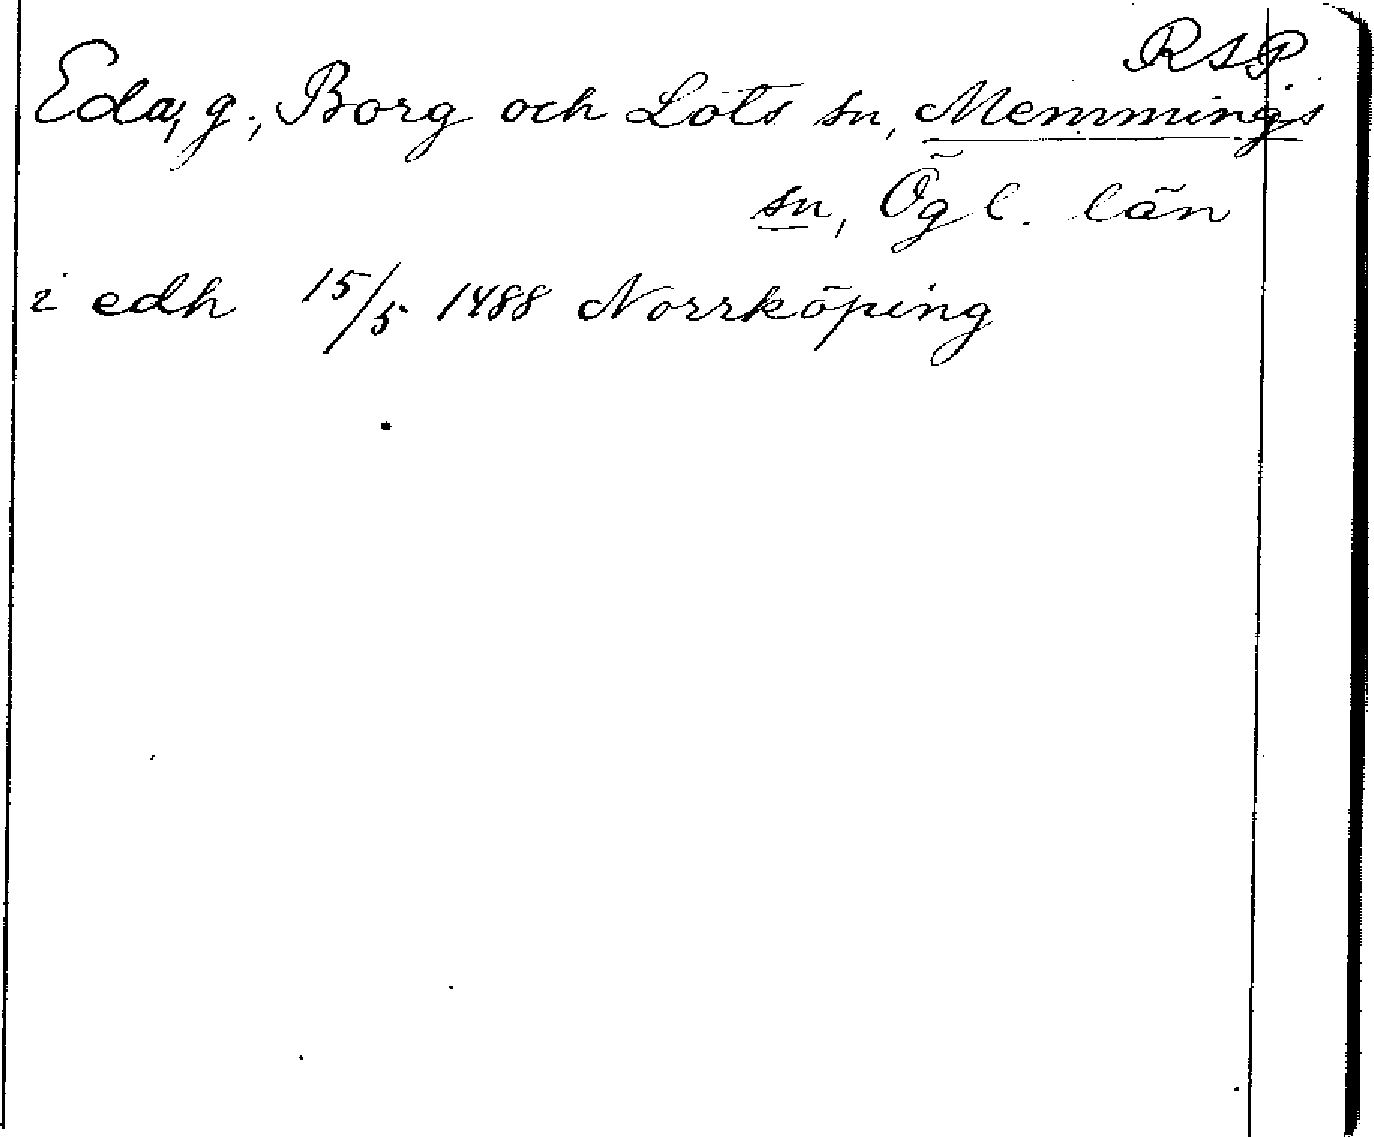 RAP
Eda, g., Borg och Löts sn, Memmings
sn, Ögl. län
i edh 15/5 1488 Norrköping